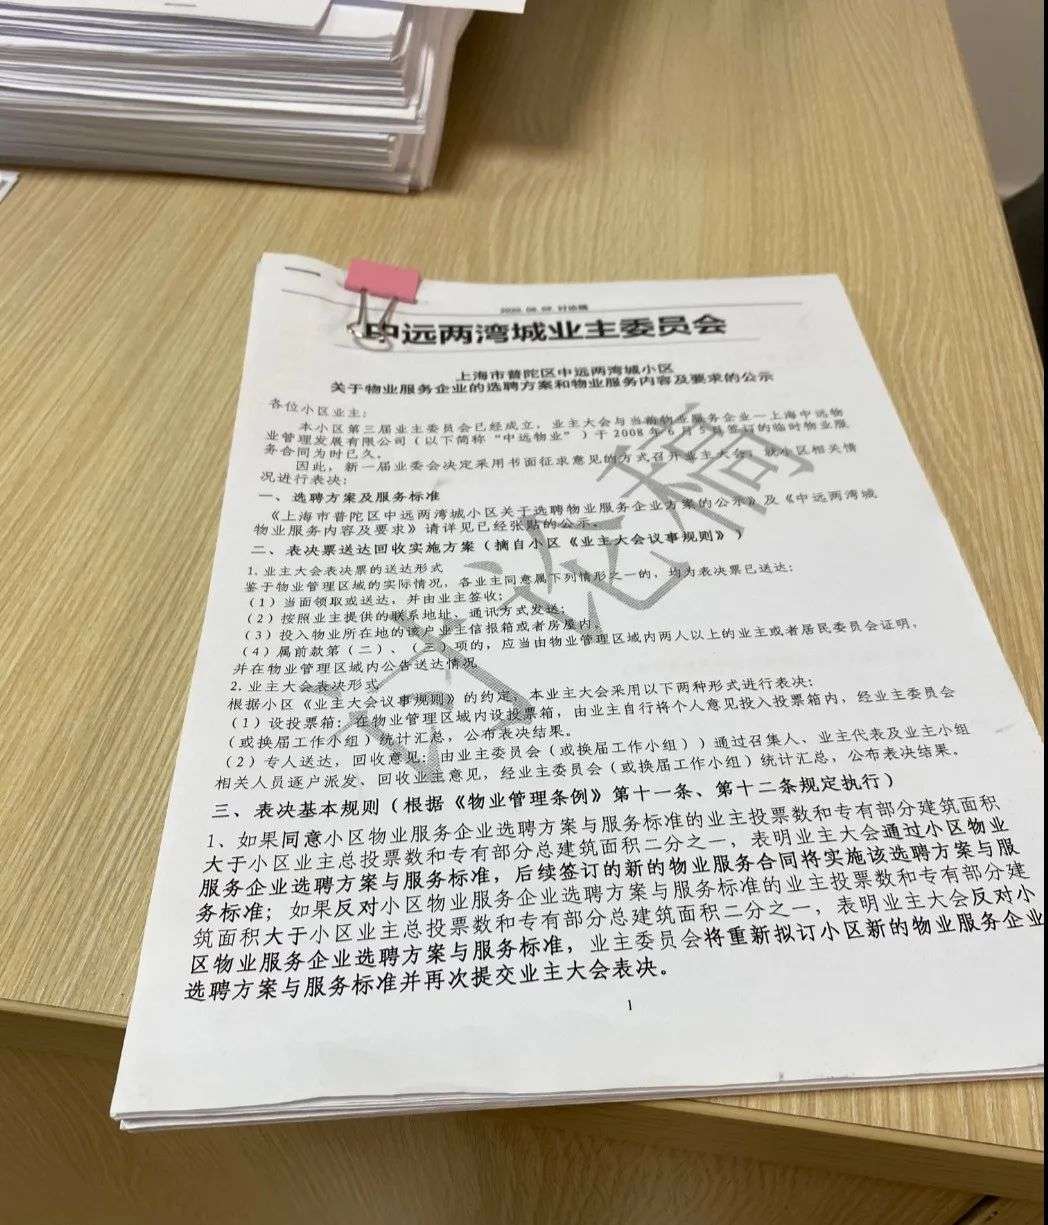 一
讨论稿
中远两湾城业主委员会
上海市普陀区中远两湾城小区
关于物业服务企业的选聘方案和物业服务内容及要求的公示
各位小区业主：
本小区第三届业主委员会已经成立，业主大会与当前物业服务企业—上海中远物
业管理发展有限公司（以下简称“中远物业”）于2008年6月5日签订的临时物业服
务合同为时已久。
因此，新一届业委会决定采用书面征求意见的方式召开业主大会，就小区相关情
况进行表决：
一、选聘方案及服务标准
《上海市普陀区中远两湾城小区关于选聘物业服务企业方案的公示》及《中远两湾城
物业服务内容及要求》请详见已经张贴的公示。
二、表决票送达回收实施方案（摘自小区《业主大会议事规则》）
1.业主大会表决票的送达形式
鉴于物业管理区域的实际情况，各业主同意属下列情形之一的，均为表决票已送达：
（1）当面领取或送达，并由业主签收；
（2）按照业主提供的联系地址、通讯方式发送；
（3）投入物业所在地的该户业主信报箱或者房屋内。
（4）属前款第（二）、（三）项的，应当由物业管理区域内两人以上的业主或者居民委员会证明，
并在物业管理区域内公告送达情况
2.业主大会表决形式
根据小区《业主大会议事规则》的约定，本业主大会采用以下两种形式进行表决：
（1）设投票箱：在物业管理区域内设投票箱，由业主自行将个人意见投入投票箱内，经业主委员会
（或换届工作小组）统计汇总，公布表决结果。
（2）专人送达，回收意见：由业主委员会（或换届工作小组））通过召集人、业主代表及业主小组
相关人员逐户派发、回收业主意见，经业主委员会（或换届工作小组）统计汇总，公布表决结果。
三、表决基本规则（根据《物业管理条例》第十一条、第十二条规定执行）
1、如果同意小区物业服务企业选聘方案与服务标准的业主投票数和专有部分建筑面积
大于小区业主总投票数和专有部分总建筑面积二分之一，表明业主大会通过小区物业
服务企业选聘方案与服务标准，后续签订的新的物业服务合同将实施该选聘方案与服
务标准；如果反对小区物业服务企业选聘方案与服务标准的业主投票数和专有部分建
筑面积大于小区业主总投票数和专有部分总建筑面积二分之一，表明业主大会反对小
区物业服务企业选聘方案与服务标准，业主委员会将重新拟订小区新的物业服务企业
选聘方案与服务标准并再次提交业主大会表决。
1
讨论稿